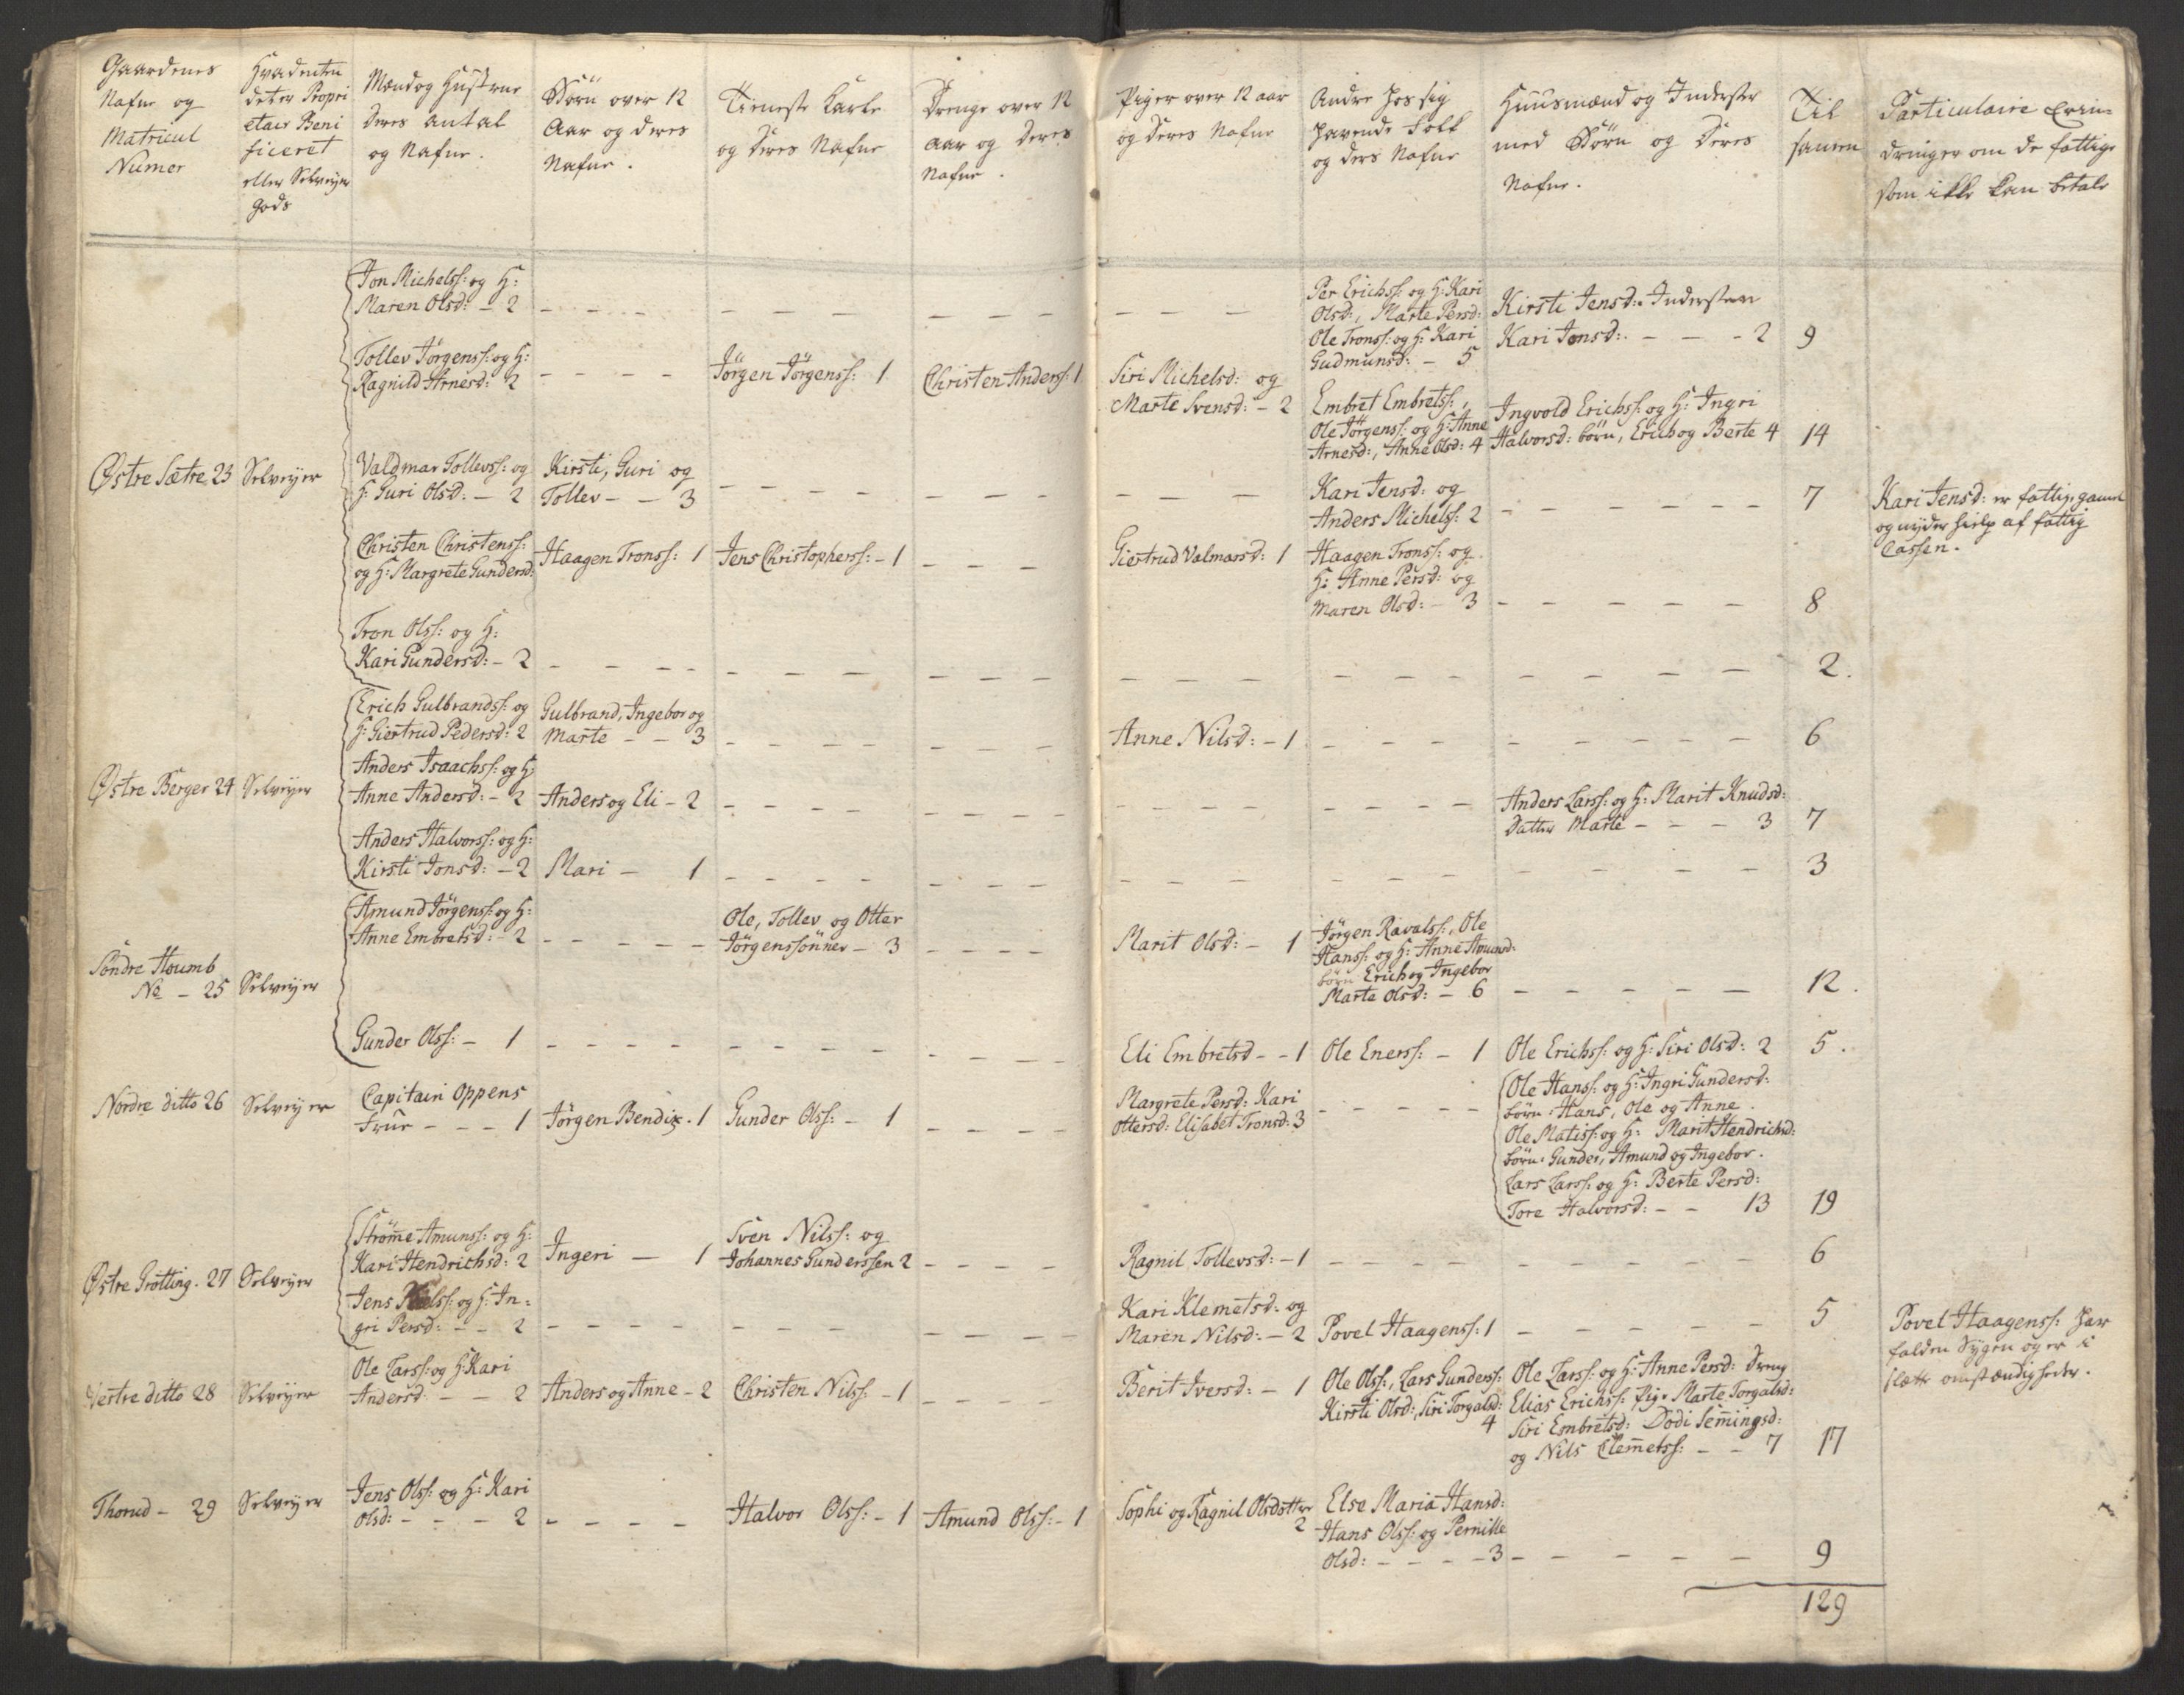 Gaardenes
Nafne og
Matricul
Numer
Hvadenten
det er Propri
etair Beni
ficeret
eller Selveyer
gods
Mænd og Hustrue
deres antal
og Nafne.
Børn over 12
Aar og deres
Nafne.
Tieneste Karle
og deres Nafne
Drenge over 12
aar og deres
Nafne.
Piger over 12 aar
og deres Nafne
Andre hos sig
havende Folk
og ders Nafne
Huusmænd og Inderster
med Børn og deres
Nafne.
Til
samen
Particulaire Erin-
dringer om de fattige
som ikke kan betale
Østre Sætre 23 Selveyer
Jon Michelss: og H:
Maren Olsd: - 2 - - - - - - - - - - - - - -
Per Erichss: og H: Kari
Olsd:, Marte Persd:
Ole Tronss: og H: Kari
Gudmunsd: - 5
Kirsti Jensd: Inderster
Kari Jonsd: - - - 2 9
Tollev Jörgenss: og H:
Ragnild Arnesd: 2 - - - - Jörgen Jörgenss: 1 Christen Anderss: 1
Siri Michelsd: og
Marte Svensd: - 2
Embret Embretss:,
Ole Jörgenss: og H: Anne
Arnesd:, Anne Olsd: 4
Ingvold Erichss: og H: Ingri
Halvorsd: börn, Erich og Berte 4 14
Valdmar Tollevss: og
H: Guri Olsd: - 2
Kirsti, Guri og
Tollev - - 3 - - - - - - - - - -
Kari Jensd: og
Anders Michelss: 2 - - - - - - 7
Kari Jensd: er fattig, gammel
og nyder hielp af fattig
Cassen.
Christen Christenss:
og H: Margrete Gundersd:
Haagen Tronss: 1 Jens Christopherss: - 1 - - - Giertrud Valmarsd: 1
Haagen Tronss: og
H: Anne Persd: og
Maren Olsd: - 3 - - - - - 8
Tron Olss: og H:
Kari Gundersd: - 2 - - - - - - - - - - - - - - - - - - - - - - 2.
Østre Berger 24 Selveyer
Erich Gulbrandss: og
H: Giertrud Pedersd: 2
Gulbrand, Ingebor og
Marte - - 3 - - - - - - - Anne Nilsd: - 1 - - - - - - - - 6
Anders Isaachss: og H:
Anne Andersd: - 2 Anders og Eli - 2 - - - - - - - - - - - - - -
Anders Larss: og H: Marit Knudsd:
Datter Marte - - - 3 7
Anders Halvorss: og H:
Kirsti Jonsd: - 2 Mari - 1 - - - - - - - - - - - - - - - - - 3
Söndre Houmb
No - 25 Selveyer
Amund Jörgenss: og H:
Anne Embretsd: - 2 - - - - -
Ole, Tollev og Otter
Jörgenssönner - 3 - - - - Marit Olsd: - 1
Jörgen Ravalss:, Ole
Hanss: og H: Anne Amunds:
börn Erich og Ingebor
Marte Olsd: - 6 - - - - - 12.
Gunder Olss: - 1 - - - - - - - - - - - - - Eli Embretsd - - 1 Ole Enerss: - 1 Ole Erichss: og H: Siri Olsd: 2 5.
Nordre ditto 26 Selveyer
Capitain Oppens
Frue - - - 1 Jörgen Bendix. 1 Gunder Olss: - 1 - - - -
Margrete Persd: Kari
Ottersd: Elisabet Tronsd: 3 - - - - -
Ole Hanss: og H: Ingri Gundersd:
börn: Hans, Ole og Anne.
Ole Matiss: og H: Marit Hendrichsd:
börn: Gunder, Amund og Ingebor.
Lars Larss: og H: Berte Persd:
Tore Halvorsd: - - 13 19
Østre Grötting. 27 Selveyer
Strömme Amunss: og H:
Kari Hendrichsd: 2 Ingeri - 1
Sven Nilss: og
Johannes Gunderssen 2 - - - - Ragnil Tollevsd: - 1 - - - - - - - - - 6
Jens Nielss: og H: In-
gri Persd: - - 2 - - - - - - - - - - - - -
Kari Klemetsd: og
Maren Nilsd: - 2 Povel Haagenss: 1 - - - - - 5
Povel Haagenss: har
falden Sygen og er i
slætte omstændigheder.
Vestre ditto 28 Selveyer
Ole Larss: og H: Kari
Andersd: - - 2 Anders og Anne - 2 Christen Nilss: - 1 - - - - Berit Iversd: - 1
Ole Olss:, Lars Gunderss:
Kirsti Olsd:, Siri Torgalsd:
4
Ole Larss: og H: Anne Persd: Dreng
Elias Erichss: Pige Marte Torgalsd:
Siri Embretsd: Dodi Semingsd:
og Nils Clemetss: - - 7 17
Thorud - 29 Selveyer
Jens Olss: og H: Kari
Olsd: - - - 2 - - - - Halvor Olss: - 1 Amund Olss: - 1
Sophi og Ragnil Olsdotter
2
Else Maria Hansd:
Hans Olss: og Pernille
Olsd: - - - - 3 - - - - - 9
129